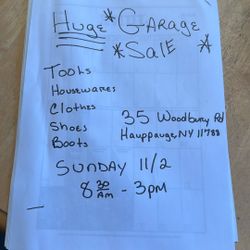 Huge * Garage
* Sale *
Tools
Housewares
Clothes
Shoes
Boots
35 Woodbury Rd
Hauppauge, NY 11788
Sunday 11/2
8 30 AM - 3 PM